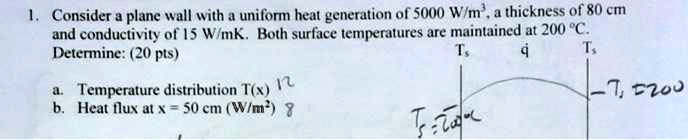 1. Consider a plane wall with a uniform heat generation of 5000 W/m³, a thickness of 80 cm
and conductivity of 15 W/mK. Both surface temperatures are maintained at 200 °C.
Determine: (20 pts)
Tₛ q̇ Tₛ
a. Temperature distribution T(x) 12
b. Heat flux at x = 50 cm (W/m²) 8